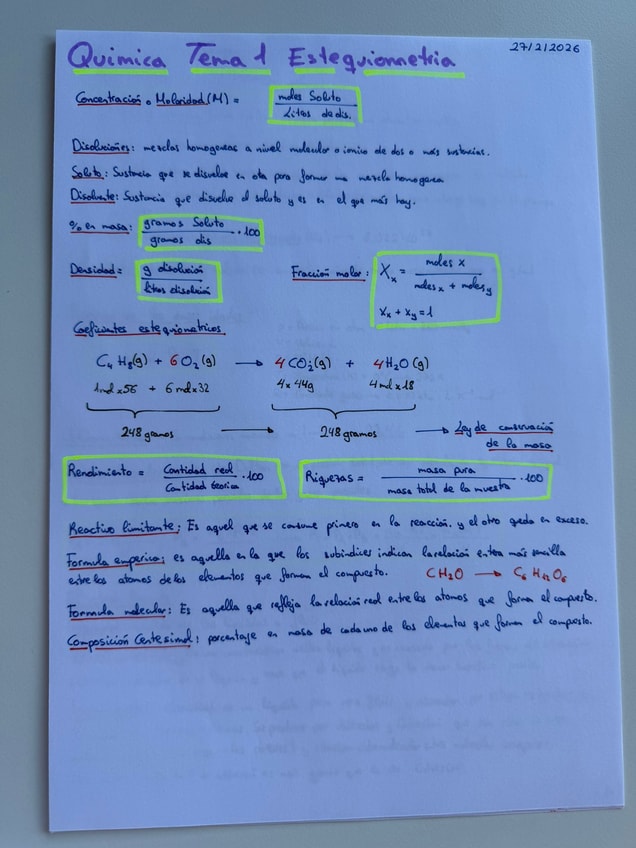 27/2/2026
Quimica Tema 1 Estequiometria
Concentración o Molaridad (M) = moles Soluto
Litros de dis.
Disoluciones: mezclas homogeneas a nivel molecular o ionico de dos o más sustancias.
Soluto: Sustancia que se disuelve en otra para formar una mezcla homogenea
Disolvente: Sustancia que disuelve al soluto y es en el que más hay.
% en masa: gramos Soluto
gramos dis · 100
Densidad = g disolución
litros disolución
Fracción molar: Xx = moles x
moles x + moles y
Xx + Xy = 1
Coeficientes estequiometricos
C4 H8(g) + 6 O2 (g) → 4 CO2(g) + 4 H2O (g)
1mol x 56 + 6 mol x 32 4 x 44g 4 mol x 18
248 gramos → 248 gramos → Ley de conservación
de la masa
Rendimiento = Cantidad real
Cantidad teorica · 100
Riquezas = masa pura
masa total de la muestra · 100
Reactivo limitante: Es aquel que se consume primero en la reacción. y el otro queda en exceso.
Formula emperica: es aquella en la que los subindices indican la relación entera más sencilla
entre los atomos de los elementos que forman el compuesto. CH2O → C6 H12 O6
Formula molecular: Es aquella que refleja la relación real entre los atomos que forman el compuesto.
Composición Centesimal: porcentaje en masa de cada uno de los elementos que forman el compuesto.